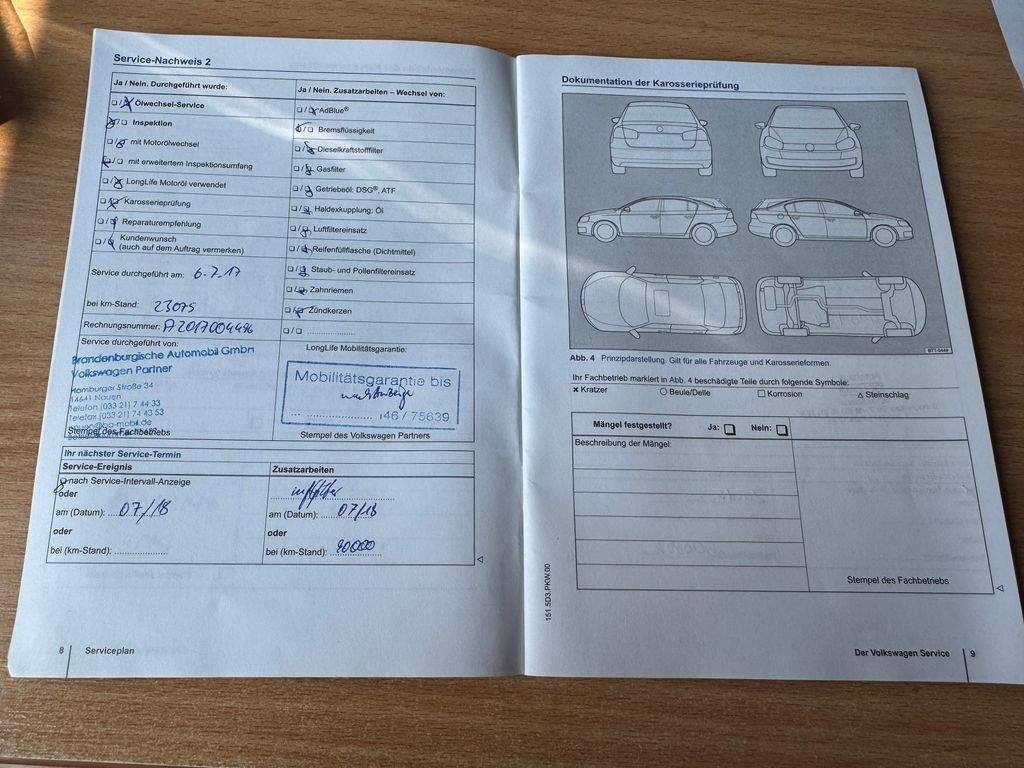 Service-Nachweis 2
Ja / Nein. Durchgeführt wurde:
❑ / ❑ Ölwechsel-Service
❑ / ❑ Inspektion
❑ / ❑ mit Motorölwechsel
❑ / ❑ mit erweitertem Inspektionsumfang
❑ / ❑ LongLife Motoröl verwendet
❑ / ❑ Karosserieprüfung
❑ / ❑ Reparaturempfehlung
❑ / ❑ Kundenwunsch
(auch auf dem Auftrag vermerken)
Service durchgeführt am: 6.7.17
bei km-Stand: 23075
Rechnungsnummer: A2017004496
Service durchgeführt von:
Brandenburgische Automobil GmbH
Volkswagen Partner
Homburger Straße 34
14641 Nauen
Telefon (033 21) 7 44 33
Telefax (033 21) 74 43 53
Stempel des Fachbetriebs
Ja / Nein. Zusatzarbeiten – Wechsel von:
❑ / ❑ AdBlue®
❑ / ❑ Bremsflüssigkeit
❑ / ❑ Dieselkraftstofffilter
❑ / ❑ Gasfilter
❑ / ❑ Getriebeöl: DSG®, ATF
❑ / ❑ Haldexkupplung: Öl
❑ / ❑ Luftfiltereinsatz
❑ / ❑ Reifenfüllflasche (Dichtmittel)
❑ / ❑ Staub- und Pollenfiltereinsatz
❑ / ❑ Zahnriemen
❑ / ❑ Zündkerzen
❑ / ❑
LongLife Mobilitätsgarantie:
Mobilitätsgarantie bis
nach Anzeige
46 / 75639
Stempel des Volkswagen Partners
Ihr nächster Service-Termin
Service-Ereignis
❑ nach Service-Intervall-Anzeige
oder
am (Datum): 07/18
oder
bei (km-Stand):
Zusatzarbeiten
am (Datum): 07/18
oder
bei (km-Stand): 90000
8 Serviceplan
Dokumentation der Karosserieprüfung
BT1-0449
Abb. 4 Prinzipdarstellung. Gilt für alle Fahrzeuge und Karosserieformen.
Ihr Fachbetrieb markiert in Abb. 4 beschädigte Teile durch folgende Symbole:
× Kratzer ○ Beule/Delle □ Korrosion △ Steinschlag
Mängel festgestellt? Ja: ❑ Nein: ❑
Beschreibung der Mängel:
Stempel des Fachbetriebs
151.5D3.PKW.00
Der Volkswagen Service 9